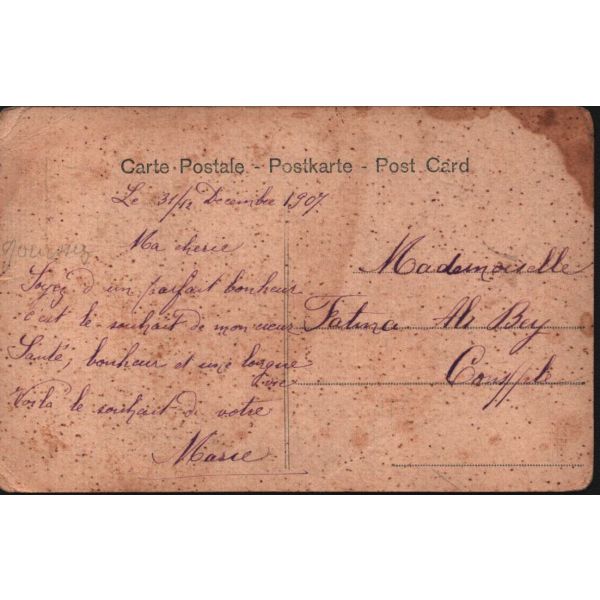 Carte Postale - Postkarte - Post Card
Le 31/12 Decembre 1907
Ma cherie
Soyez d un parfait bonheur
c'est le souhait de mon cœur
Santé, bonheur et une longue
vie
Voila le souhait di votre
Marie
Mademoiselle
Fatma Ali Bey